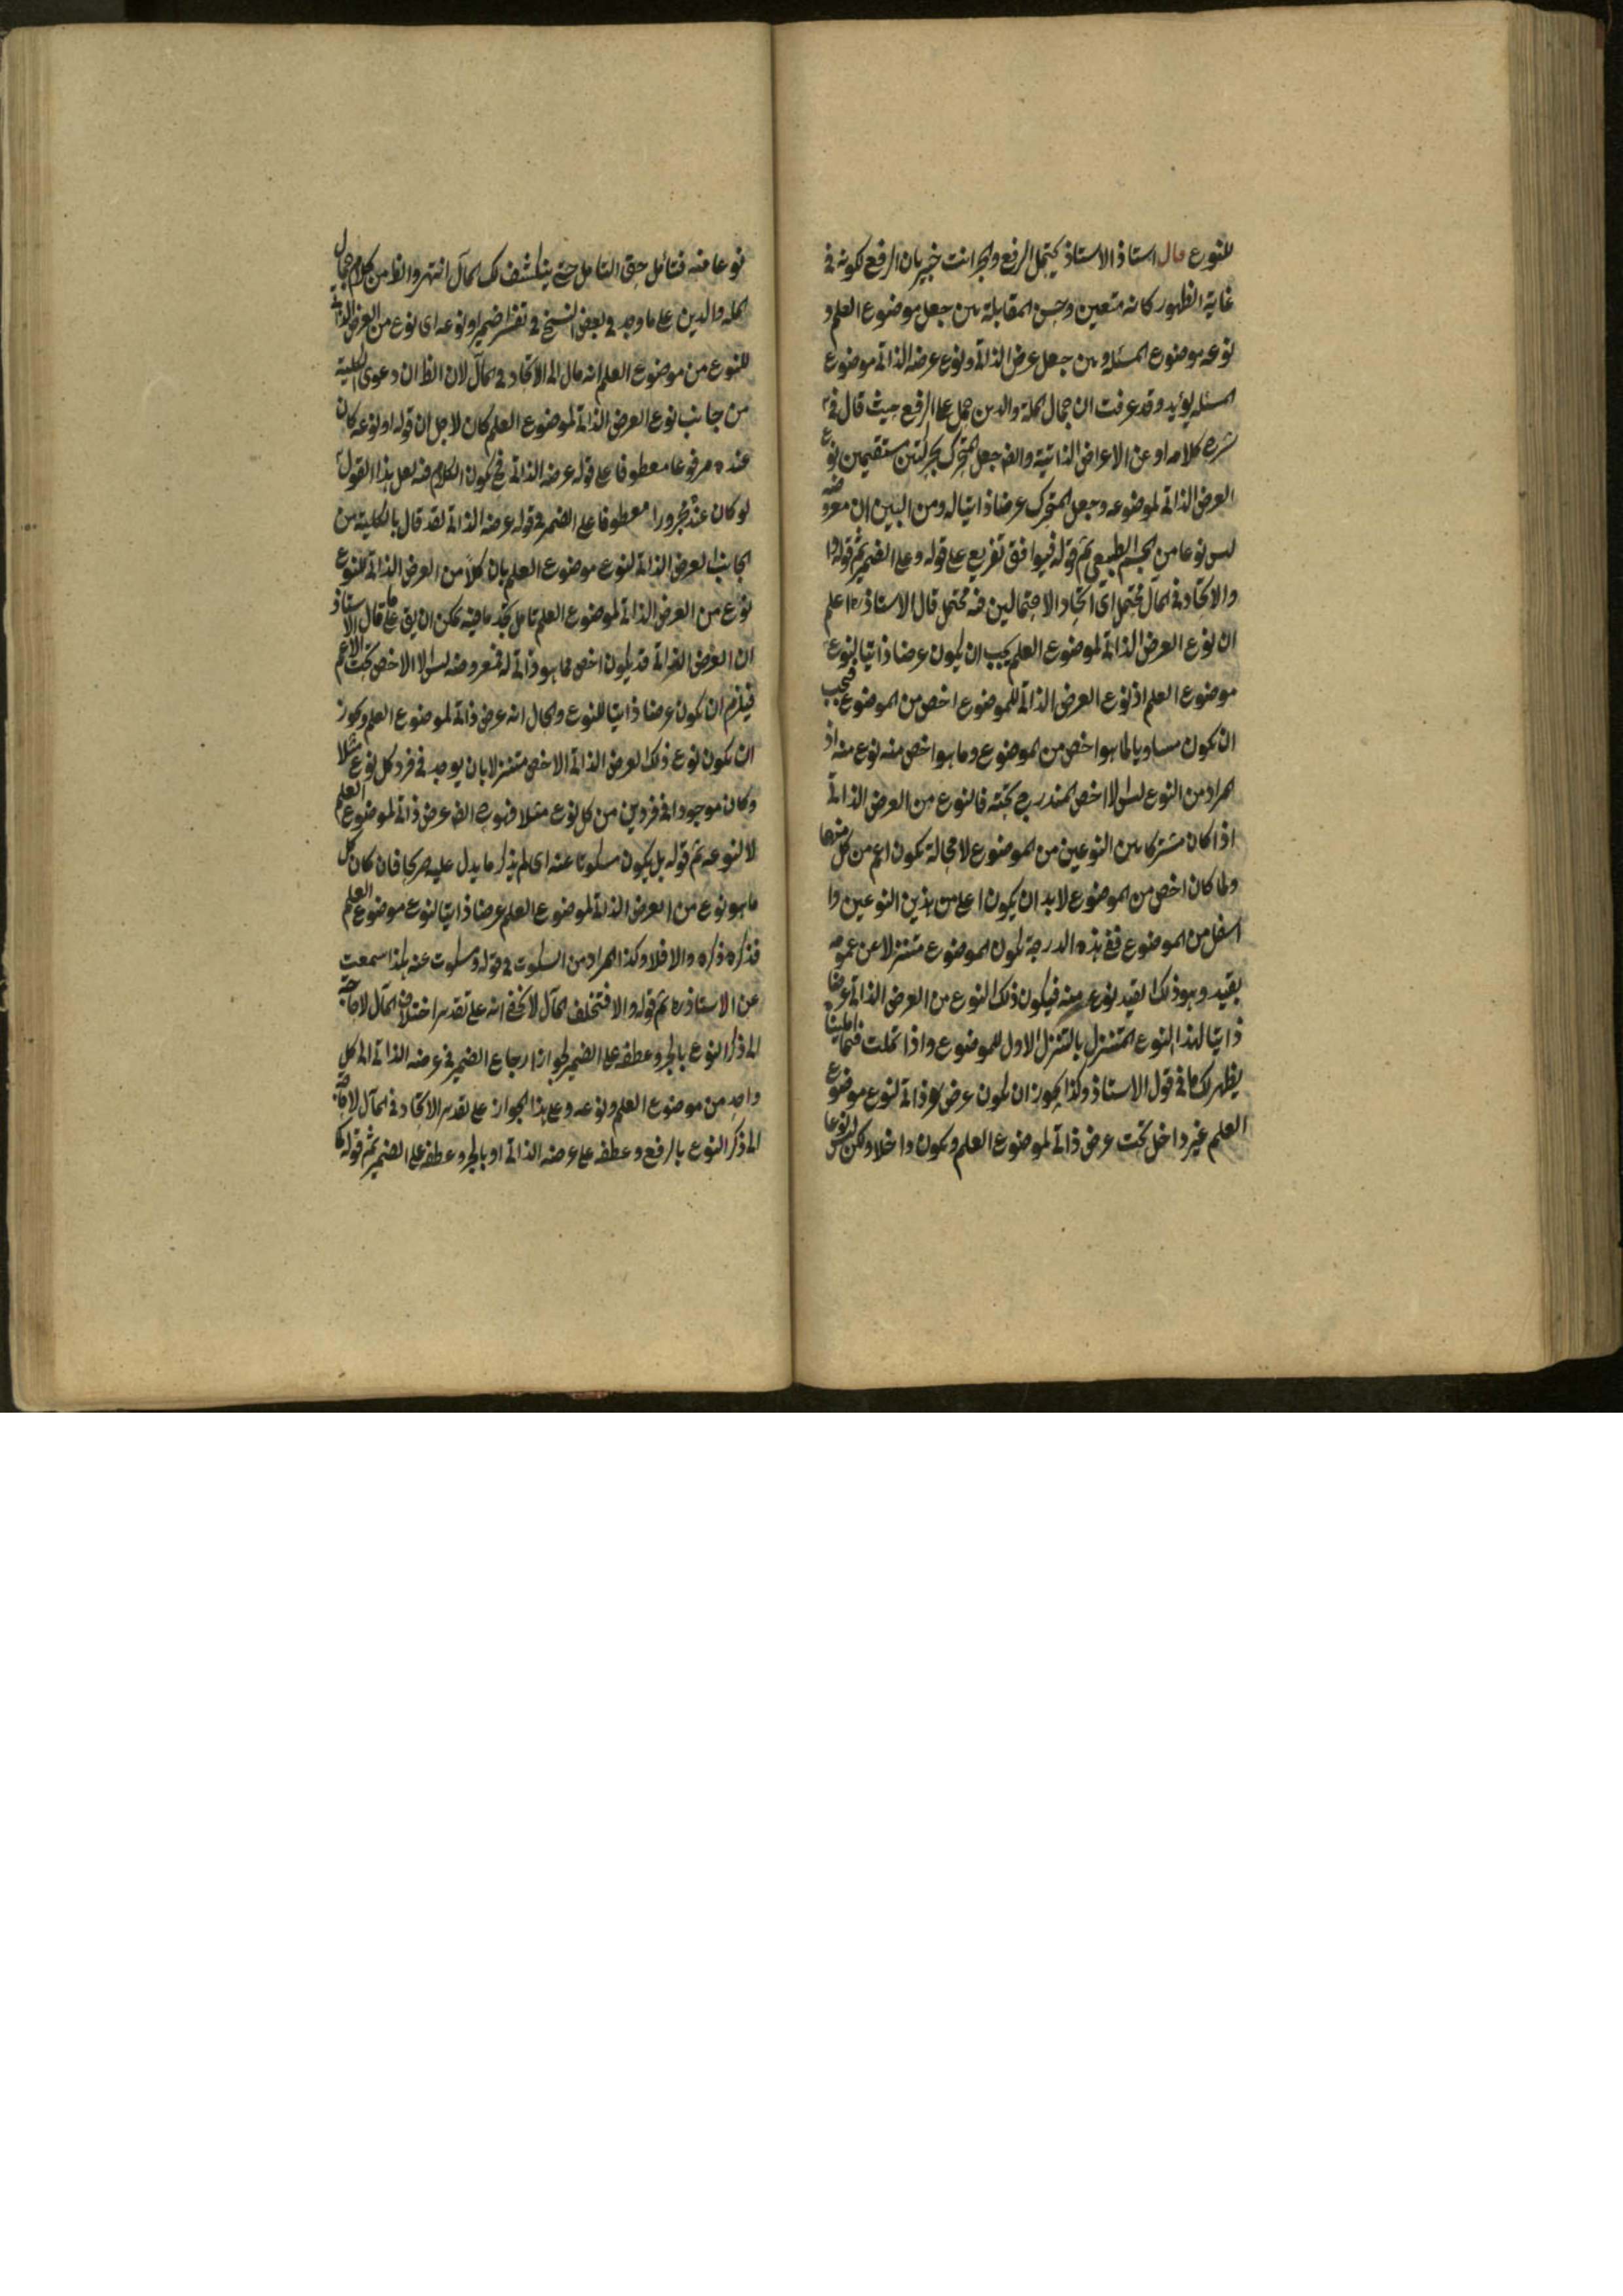 للنوع قال استاذ الاستاذ يحتمل الرفع والجر انت خبير بان الرفع لكونه في
غاية الظهور كانه متعين وحسن المقابلة بين جعل موضوع العلم و
نوعه موضوع المسئلة وبين جعل عرض الذاتي ونوع عرضه الذاتي موضوع
المسئله يؤيد وقد عرفت ان جمال الملة والدين حمل على الرفع حيث قال في
شرح كلامه او عن الاعراض الذاتية والف جعل المتحرك بحركتين مستقيمين نوع
العرض الذاتي لموضوعه وجعل المتحرك عرضا ذاتيا له ومن البين ان معروضه
ليس نوعا من الجسم الطبيعي ثم قوله فيوافق تفريع على قوله وعلى الضمير ثم قوله
والاتحاد في المآل محتمل اي اتحاد الاحتمالين فيه محتمل قال الاستاذ ره اعلم
ان نوع العرض الذاتي لموضوع العلم يجب ان يكون عرضا ذاتيا لنوع
موضوع العلم اذ نوع العرض الذاتي للموضوع اخص من الموضوع فيجب
ان يكون مساويا لما هو اخص من الموضوع وما هو اخص منه نوع منه اذ
المراد من النوع ليس الا اخص المندرج تحته فالنوع من العرض الذاتي
اذا كان مشتركا بين النوعين من الموضوع لا محالة يكون اعم من كل منهما
ولما كان اخص من الموضوع لا بد ان يكون اعلى من هذين النوعين وا
اسفل من الموضوع ففي هذه الدرجة يكون الموضوع متنزلا عن عمومه
بقيد وهو ذلك القيد نوع منه فيكون ذلك النوع من العرض الذاتي عرضا
ذاتيا لهذا النوع المتنزل بالتنزل الاول للموضوع واذا تاملت فيما املينا
يظهر لك ما في قول الاستاذ وكذا يجوز ان يكون عرض هو ذاتي لنوع موضوع
العلم غير داخل تحت عرض ذاتي لموضوع العلم ويكون داخلا ولكن ليس نوعا
نوعا منه فتأمل حق التامل حتى ينكشف لك المآل انتهى والظ من كلام جمال
الملة والدين على ما وجد في بعض النسخ في تفسير ضمير او نوعه اي نوع من العرض الذاتي
للنوع من موضوع العلم انه مال الى الاتحاد في المآل لان الظ ان دعوى الكلية
من جانب نوع العرض الذاتي لموضوع العلم كان لاجل ان قوله او نوعه كان
عنده مرفوعا معطوفا على قوله عرضه الذاتي فح يكون الكلام فيه لعل هذا القول
لو كان عنده مجرورا معطوفا على الضمير في قوله عرضه الذاتي لقد قال بالكلية من
الجانب العرض الذاتي لنوع موضوع العلم بان كلا من العرض الذاتي للنوع
نوع من العرض الذاتي لموضوع العلم تامل تجد ما فيه يمكن ان يق على ما قال الاستاذ
ان العرض الذاتي قد يكون اخص مما هو ذاتي له فمعروضه ليس الا الاخص تحت الاعم
فيلزم ان يكون عرضا ذاتيا للنوع والحال انه عرض ذاتي لموضوع العلم ويجوز
ان يكون نوع ذلك العرض الذاتي الاخص متنزلا بان يوجد في فرد كل نوع مثلا
وكان موجودا في فردين من كل نوع مثلا فنوعه الف عرض ذاتي لموضوع العلم
لا لنوعه ثم قوله بل يكون مسكوتا عنه اي لم يذكر ما يدل عليه صريحا فان كان كل
ما هو نوع من العرض الذاتي لموضوع العلم عرضا ذاتيا لنوع موضوع العلم
فذكره ذكره والا فلا وكذا المراد من السكوت في قوله ومسكوت عنه هكذا سمعت
عن الاستاذ ره ثم قوله والا فتخلف المآل لا يخفى انه على تقدير اختلاف المآل لا حاجة
الى ذكر النوع بالجر وعطفه على الضمير لجواز ارجاع الضمير في عرضه الذاتي الى كل
واحد من موضوع العلم ونوعه وعلى هذا الجواز على تقدير الاتحاد في المآل لا حاجة
الى ذكر النوع بالرفع وعطفه على عرضه الذاتي او بالجر وعطفه على الضمير ثم قوله كما